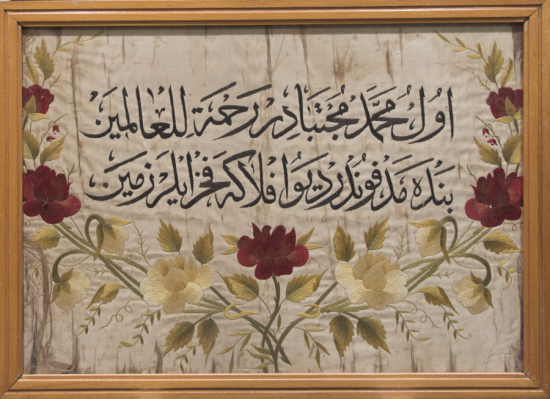 اول محمد مجتبادر رحمة للعالمين
بنده مدفوندر ديو افلاكه فخر ايلر زمين